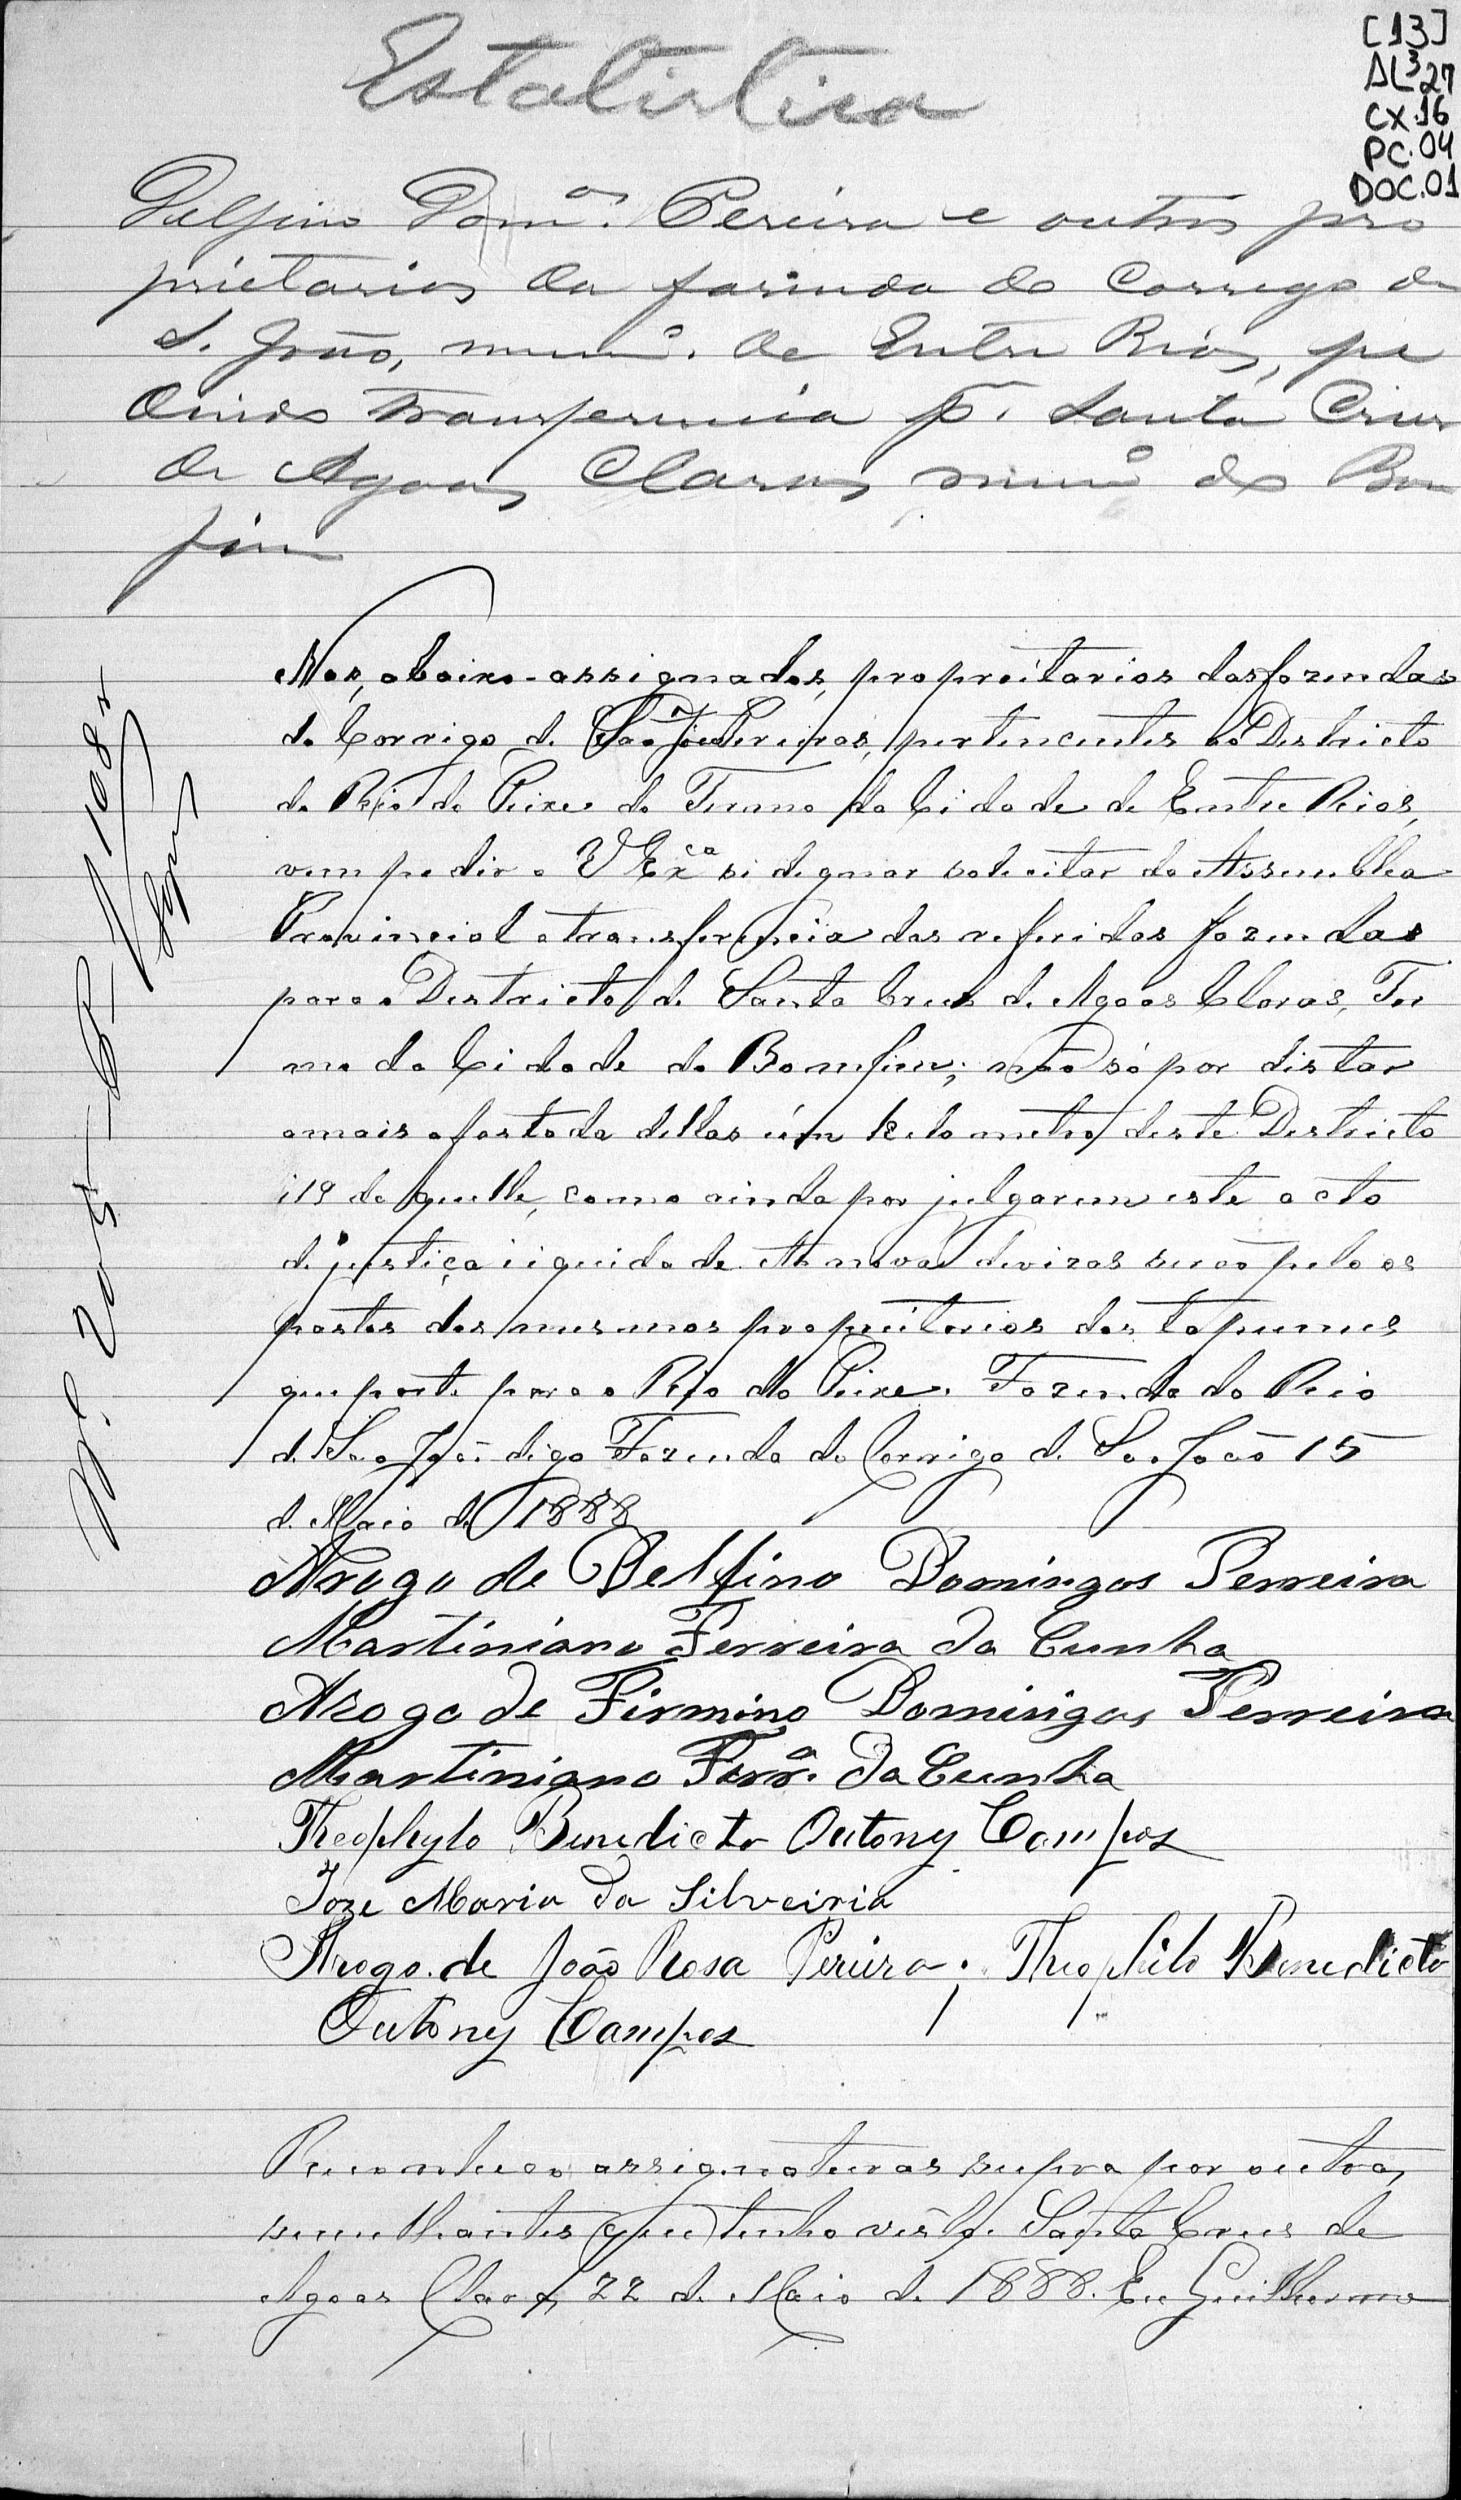 [13]
AL³27
CX.16
PC.04
DOC.01
Estatistica
Delfino Dom.os Pereira e outros pro
prietarios da fazenda do Corrego de
S. João, mun.o de Entre Rios, pe
dindo transferencia p.a Santa Cruz
de Agoas Claras mun.o do Bom
fim
Nos, abaixo-assignados, proprietarios das fazendas
do Corrigo de São João Pereiras, pertencentes ao Districto
do Rio do Peixe do Termo da Cidade de Entre Rios,
vem pedir a V Ex.ca si dignar solicitar da Assemblea
Provincial a transferencia das referidas fazendas
para o Destricto de Santa Crus de Agoas Claras, Ter
mo da Cidade do Bomfim; não só por distar
a mais afastada dellas um kilometro deste Destricto
i 19 da quelle, como ainda por julgarem este acto
de justiça i iquidade. As novas devizas serão pelo os
postos dos mesmos propreitarios dos tapumes
que parte para o Rio do Peixe. Fazenda do Rio
de São João digo Fazenda do Corrigo de São João 15
de Maio de 1888
Arogo de Delfino Domingos Perreira
Martiniano Ferreira da Cunha
Arogo de Firmino Domingos Perreira
Martiniano Ferr.a da Cunha
Theophylo Benedicto Outony Campos
Joze Maria da Silveiria
Arogo de João Rosa Pereira. Theophilo Benedicto
Outony Campos
Reconheco assignaturas supra por outras
semelhantes que tenho visto. Santa Crus de
Agoas Claras, 22 de Maio de 1888. Eu Guilherme
N.o 205